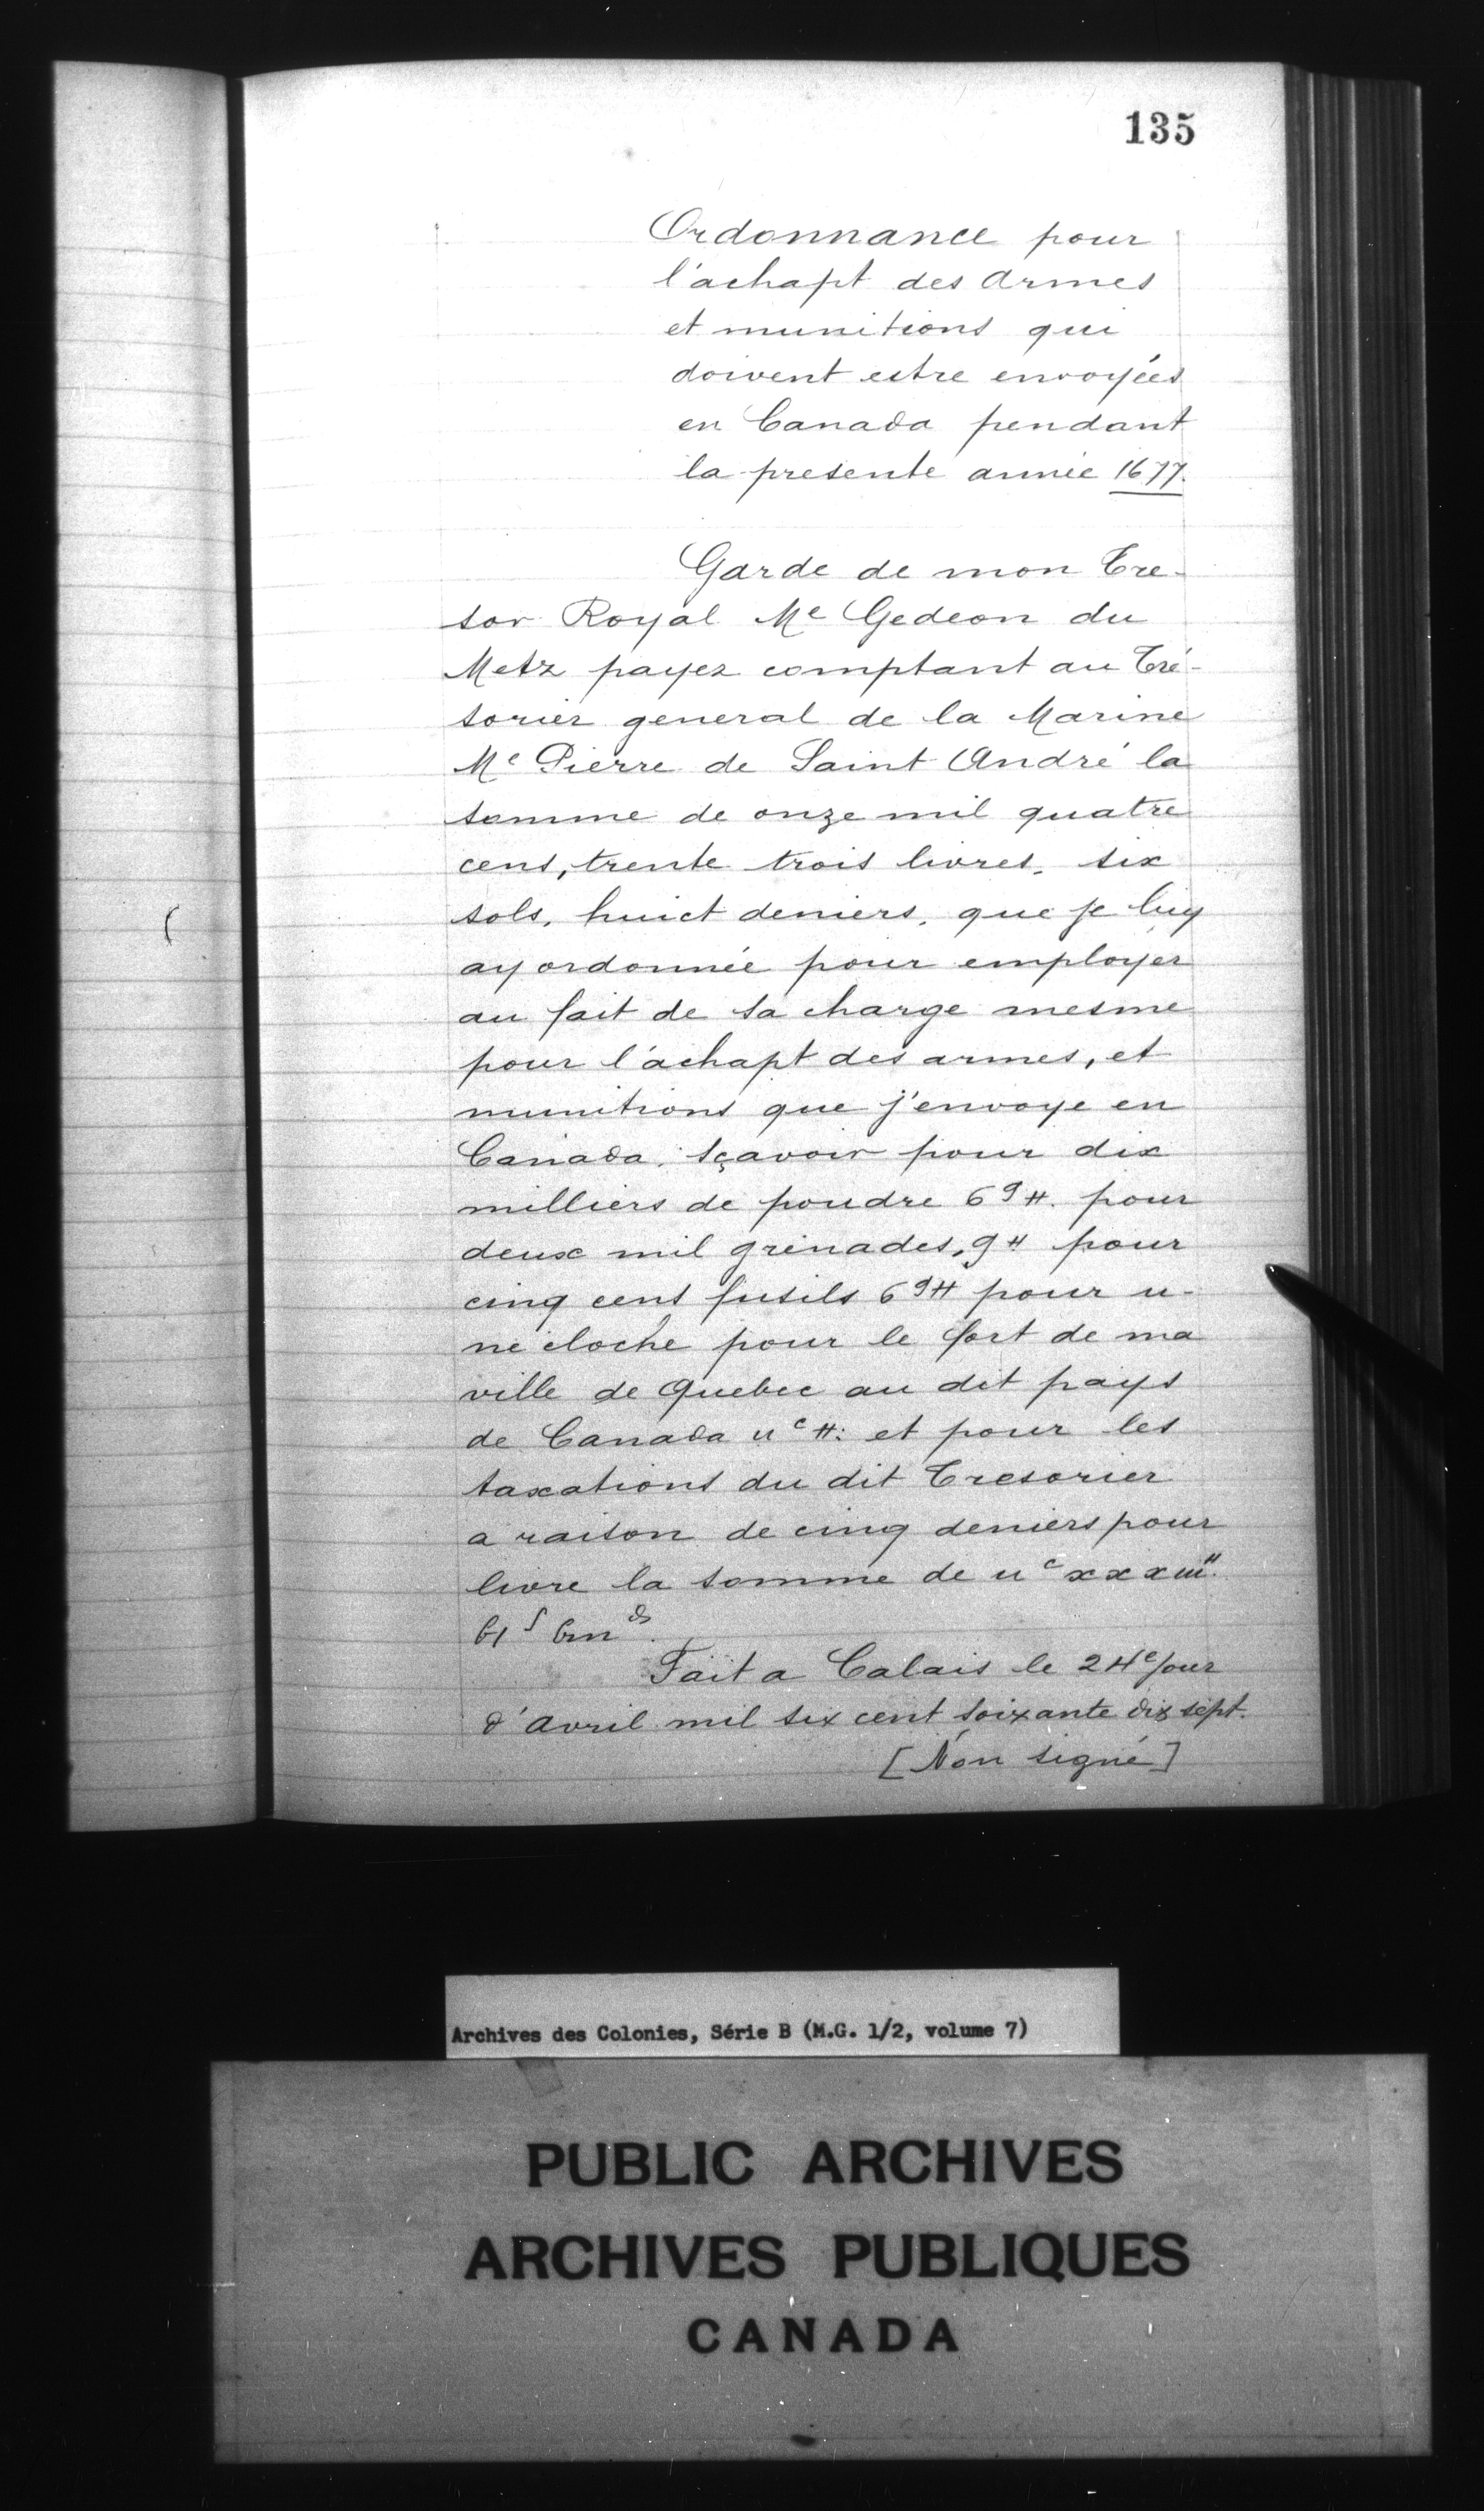 135
Ordonnance pour
l'achapt des Armes
et munitions qui
doivent estre envoyées
en Canada pendant
la presente année 1677.
Garde de mon Tre-
sor Royal Me Gedeon du
Metz payez comptant au Tré-
sorier general de la Marine
Me Pierre de Saint André la
somme de onze mil quatre
cens, trente trois livres, six
sols, huict deniers, que je luy
ay ordonnée pour employer
au fait de sa charge mesme
pour l'achapt des armes, et
munitions que j'envoye en
Canada, sçavoir pour dix
milliers de poudre 6 9 ₶. pour
deux mil grenades, 9 ₶ pour
cinq cent fusils 6 9 ₶ pour u-
ne cloche pour le fort de ma
ville de Quebec au dit pays
de Canada II c ₶: et pour les
taxations du dit Tresorier
a raison de cinq deniers pour
livre la somme de II c xxxIII ₶.
Fait a Calais le 24e jour
d'Avril mil six cent soixante dix sept.
[Non signé]
Archives des Colonies, Série B (M.G. 1/2, volume 7)
PUBLIC ARCHIVES
ARCHIVES PUBLIQUES
CANADA